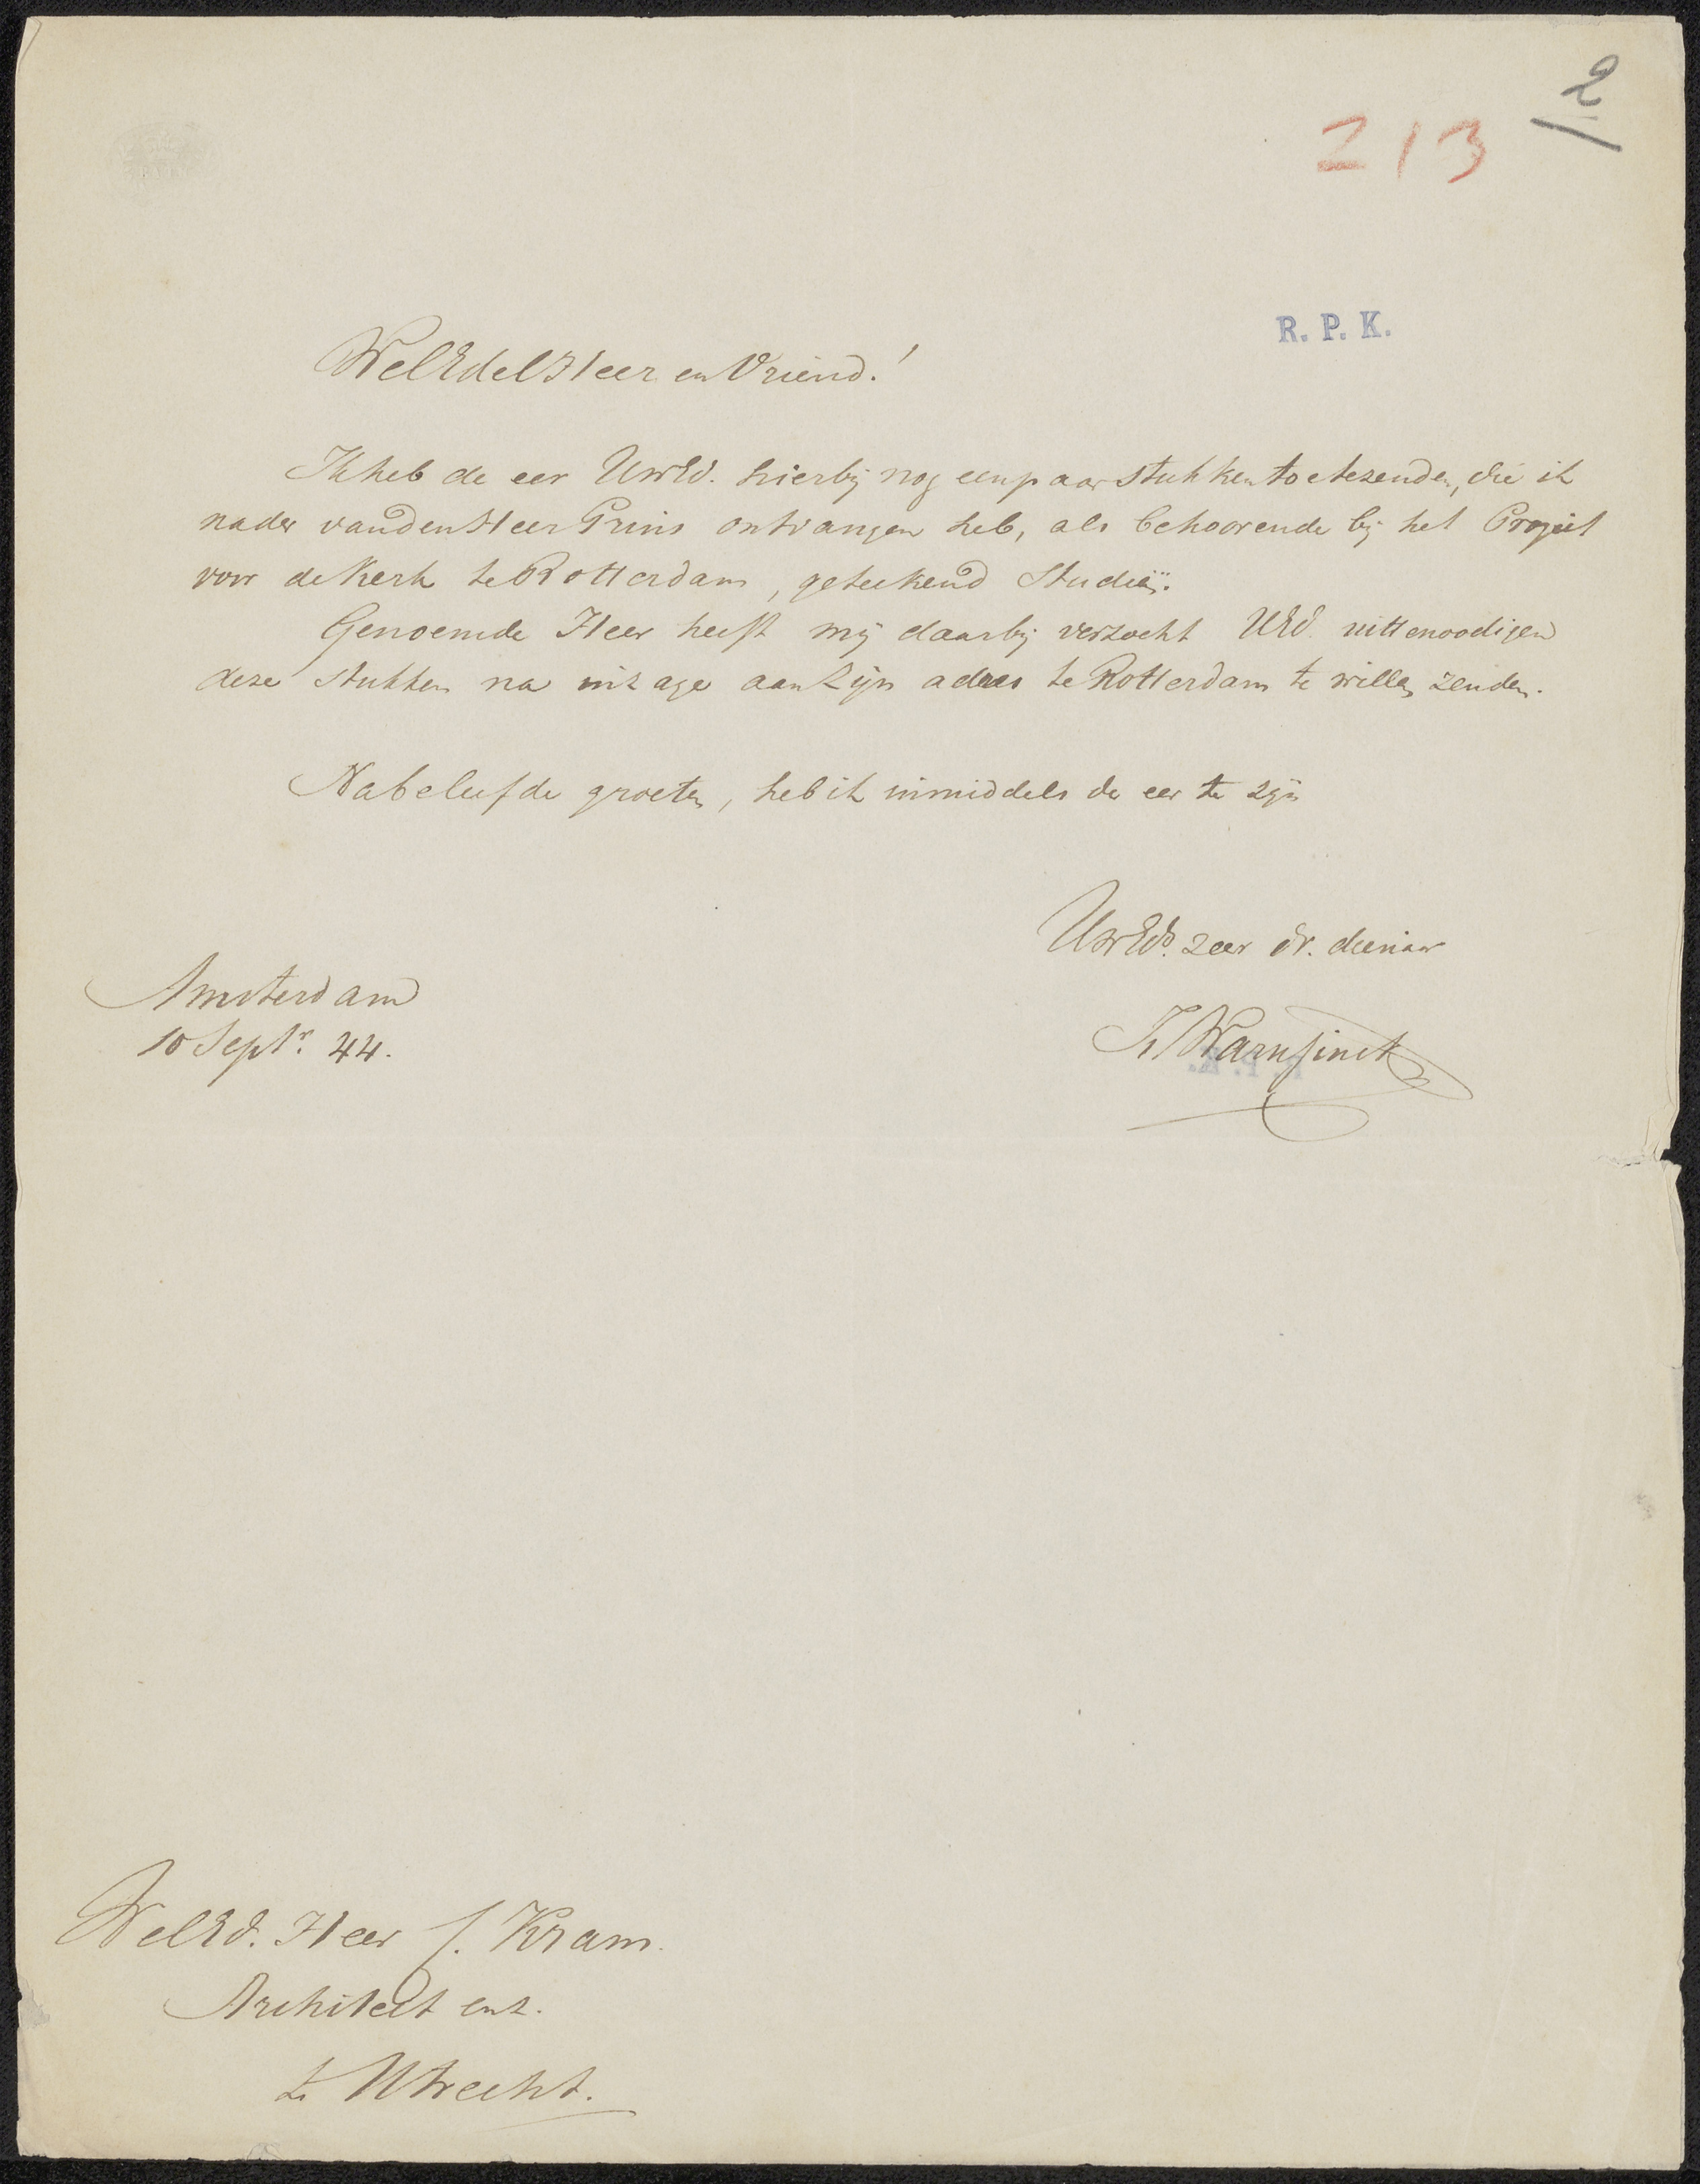 2
213
R. P. K.
WelEdel Heer en Vriend!
Ik heb de eer UwEd. hierbij nog een paar stukken toetezenden, die ik
nader van den Heer Prins ontvangen heb, als behoorende bij het Project
voor de Kerk te Rotterdam, geteekend Studiën.
Genoemde Heer heeft mij daarbij verzocht UEd. uittenoodigen
deze stukken na inzage aan zijn adres te Rotterdam te willen zenden.
Na beleefde groeten, heb ik inmiddels de eer te zijn
UwEds. zeer dr. dienaar
Amsterdam
10 Septr. 44.
Warnsinck
WelEd. Heer J. Kram.
Architect enz.
te Utrecht.